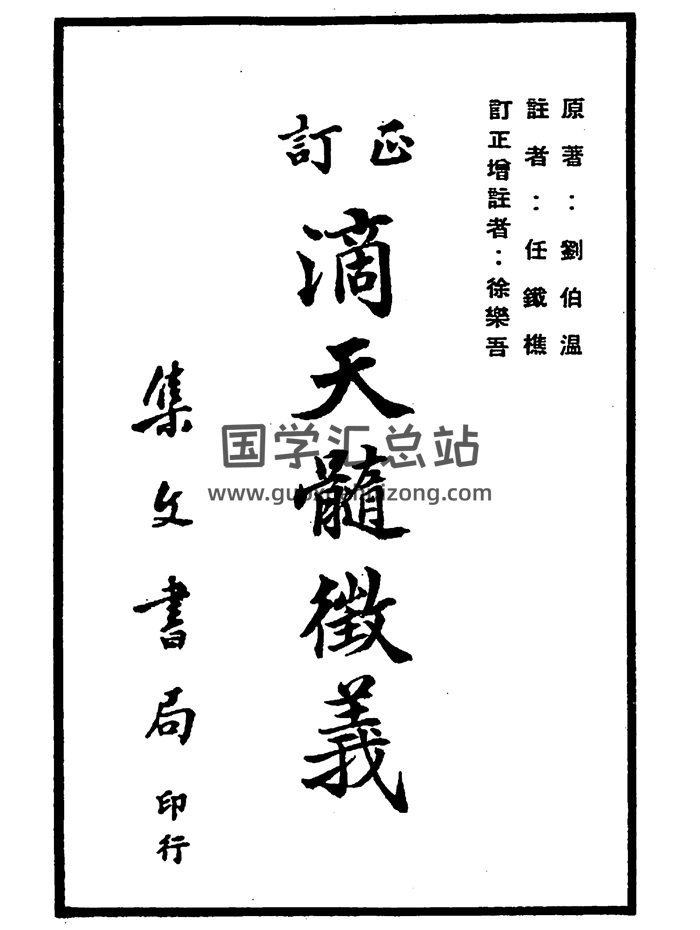 原著：劉伯温
註者：任鐵樵
訂正增註者：徐樂吾
訂正
滴天髓徵義
集文書局印行
国学汇总站
www.guoxuehuizong.com